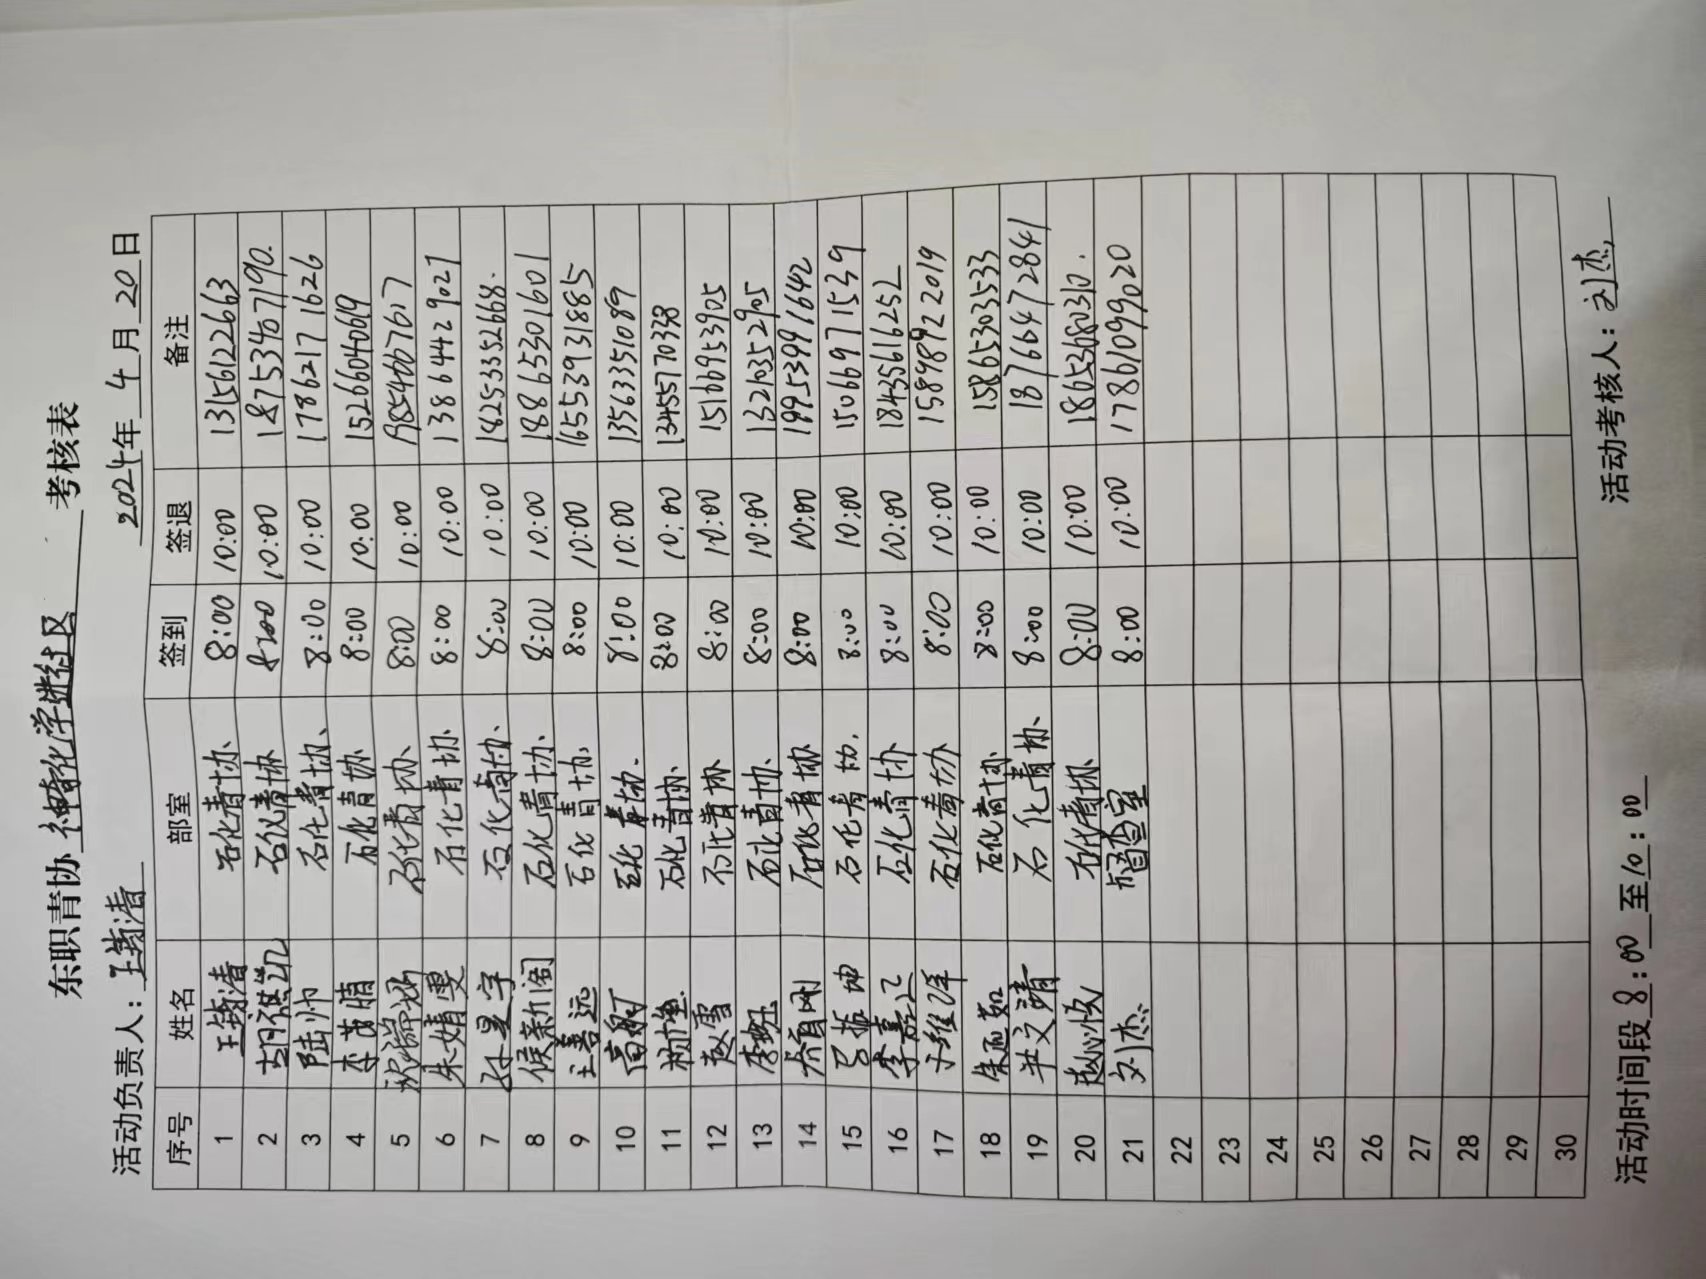 东职青协 神奇化学进社区 考核表
活动负责人：王锦清 2024年 4 月 20 日
序号 姓名 部室 签到 签退 备注
1 王锦清 石化青协、 8:00 10:00 13561222663
2 胡祺凯 石化青协 8:00 10:00 18753407190.
3 陆帅 石化青协、 8:00 10:00 17862171626
4 李茵腈 石化青协 8:00 10:00 15266040619
5 石化青协 8:00 10:00
6 朱婧雯 石化青协 8:00 10:00 13864429027
7 孙星宇 石化青协、 8:00 10:00 18253352668.
8 侯新闻 石化青协、 8:00 10:00 18865301601
9 王善远 石化青协、 8:00 10:00 16553931885
10 高舸 石化青协. 8:00 10:00 13563351089
11 石化青协、 8:00 10:00 13455770338
12 赵雪 石化青协 8:00 10:00 15166953905
13 石化青协、 8:00 10:00 13210352905
14 石化青协 8:00 10:00 19953991642
15 吕振坤 石化青协. 8:00 10:00 15066971539
16 李嘉辽 石化青协 8:00 10:00 18435616252
17 于维洋 石化青协 8:00 10:00 15898922019
18 朱延茹 石化青协 8:00 10:00 15865303533
19 半文靖 石化青协、 8:00 10:00 18766472841
20 赵心悦 石化青协 8:00 10:00
21 刘杰 督查室 8:00 10:00 17861099020
22
23
24
25
26
27
28
29
30
活动时间段 8:00 至 10:00 活动考核人：刘杰